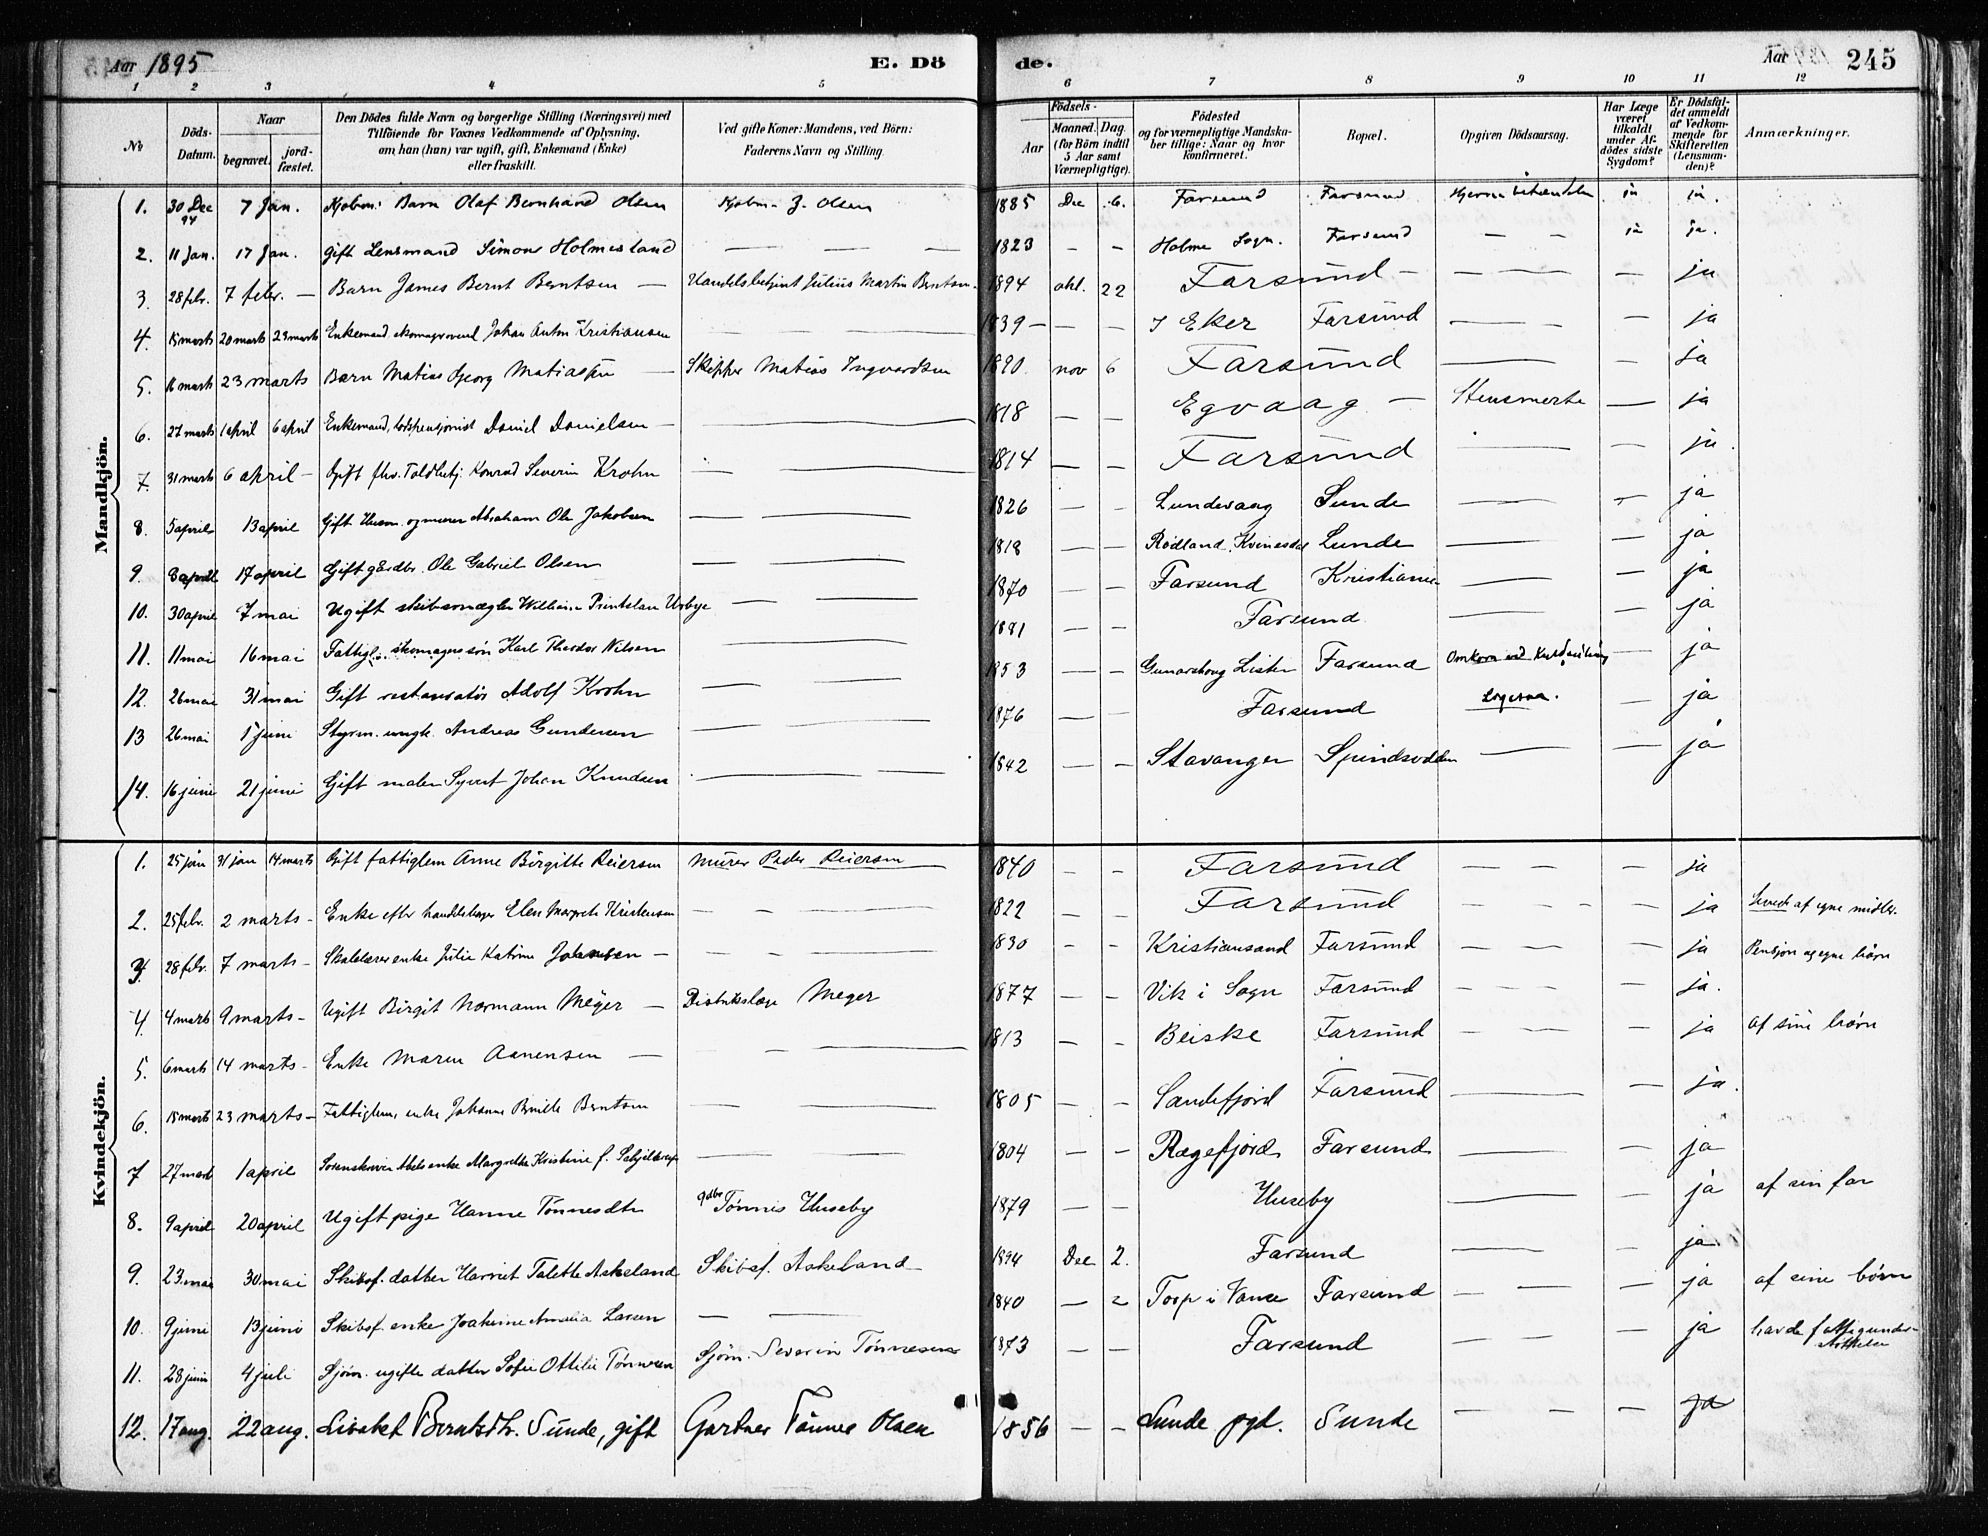 Aar 1895 E. Döde. Aar 245
1 2 3 4 5 6 7 8 9 10 11 12
No Döds-Datum. Naar begravet. jordfæstet. Den Dödes fulde Navn og borgerlige Stilling (Næringsvei) med Tilföiende for Voxnes Vedkommende af Oplysning, om han (hun) var ugift, gift, Enkemand (Enke) eller fraskilt. Ved gifte Koner: Mandens, ved Börn: Faderens Navn og Stilling. Födsels- Aar Maaned. Dag. (for Börn indtil 5 Aar samt Værnepligtige). Födested og for værnepligtige Mandskaber tillige: Naar og hvor konfirmeret. Bopæl. Opgiven Dödsaarsag. Har Læge været tilkaldt under Afdødes sidste Sygdom? Er Dödsfaldet anmeldt af Vedkommende for Skifteretten (Lensmanden)? Anmærkninger.
Mandkjön.
1. 30 Dec 94 7 Jan. Kjøbm. Barn Olaf Bernhard Olsen Kjøbm. J. Olsen 1885 Dec 6. Farsund Farsund ja ja.
2. 11 Jan. 17 Jan. Gift Lensmand Simon Holmesland — — — 1823 - - Holme Sogn. Farsund - - ja ja.
3. 28 febr. 7 febr. — Barn James Bernt Berntsen — Handelsbetjent Julius Martin Berntsen. 1894 okt. 22 Farsund — — — — ja
4. 15 marts 20 marts 23 marts Enkemand skomagersvend Johan Anton Kristiansen — — — 1839 — - - Eker Farsund — - — ja
5. 16 marts 23 marts Barn Matias Georg Matiassen — Skipper Matias Ingvardsen 1890. nov 6 Farsund — — ja
6. 27 marts 1 april 6 april Enkemand, lodspensjonist Daniel Danielsen — — 1818 — — Egvaag — — ja
7. 31 marts 6 april — Gift fhv. Toldbetj. Konrad Severin Krohn — — 1814 — — Farsund — — ja.
8. 5 april 13 april Gift Husm. og murer Abraham Ole Jakobsen — — 1826 — — Lundevaag Sunde — — ja
9. 8 april 17 april Gift gårdbr. Ole Gabriel Olsen — — 1818 — — Rødland, Kvinesdal Lunde — — ja
10. 30 april 7 mai Ugift skibsmægler William Printzlau Urbye — — 1870 — — Farsund Kristiania — — ja
11. 11 mai 16 mai Fattigl. skomagersøn Karl Theodor Nilsen — — 1881 — — Farsund. — — ja
12. 26 mai 31 mai Gift restauratør Adolf Krohn — — 1853 — — Lister Farsund Omkom ved — ja
13 26 mai 1 juni Styrm. ungk. Andreas Gundersen — — 1876 — — Farsund — ja
14. 16 juni 21 juni Gift maler Syvert Johan Knudsen — — 1842 — — Stavanger Spindsodden — — ja
Kvindekjön.
1. 25 jan 31 jan 14 marts Gift fattiglem Anne Birgitte Reiersen murer Peder Reiersen 1840 - - Farsund — — — — ja
2. 25 febr. 2 marts - Enke efter Elen Margrete Kristensen — — — 1822 - Farsund — — - - ja Levede af egne midler.
3. 28 febr. 7 marts - Skolelærerenke Julie Katrine Johansen — — — 1830 - - Kristiansand Farsund — — — ja Pensjon og egne börn
4. 4 marts 9 marts - Ugift Birgit Normann Meyer — Distriktslæge Meyer 1877 — — Vik i Sogn Farsund — — — — ja.
5. 6 marts 14 marts - Enke Maren Aanensen — - — 1813 — - Beiske Farsund — — — — ja af sine børn
6. 18 marts 23 marts — Fattiglem, enke Johanne Pernille Berntsen — — 1805 — - Sandefjord Farsund — — ja.
7 27 marts 1 april Sorenskriver Abels enke Margrethe Kristine f. Schjelderup — — 1804 — — Rægefjord Farsund — — ja
8. 9 april 20 april Ugift pige Hanne Tønnesdtr gdbr Tønnes Huseby 1879 — — Huseby — — ja af sin far
9. 23 mai 30 mai Skibsf. datter Harriet Talette Askeland Skibsf. Askeland 1894 Dec 2. Farsund — — ja
10. 9 juni 13 juni Skibsf. enke Joakime Amalia Larsen — — 1840 — 2 Torp i Vanse Farsund — — — ja af sine børn
11. 28 juni 4 juli Sjøm. ugifte datter Sofie Ottilie Tønnesen Sjøm. Severin Tønnesen 1873 — — Farsund — — — ja havde fattigunderstøttelse
12. 17 aug. 22 aug. Lisabet Berntsdtr. Sunde, gift Gartner Tönnes Olsen 1856 — — Lunde pgd. Sunde — — — — ja